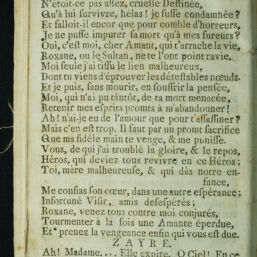 N'étoit-ce pas assez, cruelle Destinée,
Qu'à lui survivre, hélas! je fusse condamnée?
Et falloit-il encor que pour comble d'horreurs,
Je ne pusse imputer sa mort qu'à mes fureurs?
Oui, c'est moi, cher Amant, qui t'arrache la vie,
Roxane, ou le Sultan, ne te l'ont point ravie.
Moi seule j'ai tissu le lien malheureux,
Dont tu viens d'éprouver les détestables nœuds.
Et je puis, sans mourir, en souffrir la pensée,
Moi, qui n'ai pu tantôt, de ta mort menacée,
Retenir mes esprits prompts à m'abandonner!
Ah! n'ai-je eu de l'amour que pour t'assassiner?
Mais c'en est trop. Il faut par un promt sacrifice
Que ma fidéle main te venge, & me punisse.
Vous, de qui j'ai troublé la gloire, & le repos,
Héros, qui deviez tous revivre en ce Héros;
Toi, mère malheureuse, & qui dès notre en-
fance,
Me confias son cœur, dans une autre espérance;
Infortuné Visir, amis desespérés;
Roxane, venez tous contre moi conjurés,
Tourmenter à la fois une Amante éperdue,
Et prenez la vengeance enfin qui vous est due.
ZAYRE.
Ah! Madame.... Elle expire. O Ciel! En ce